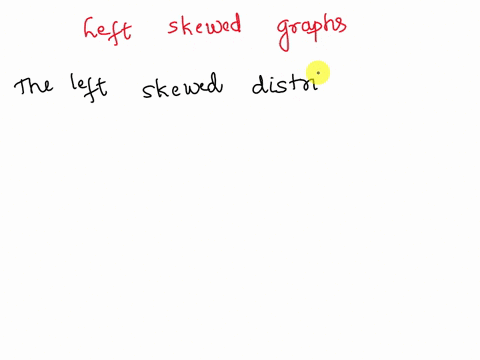 Left skewed graphs
The left skewed distri